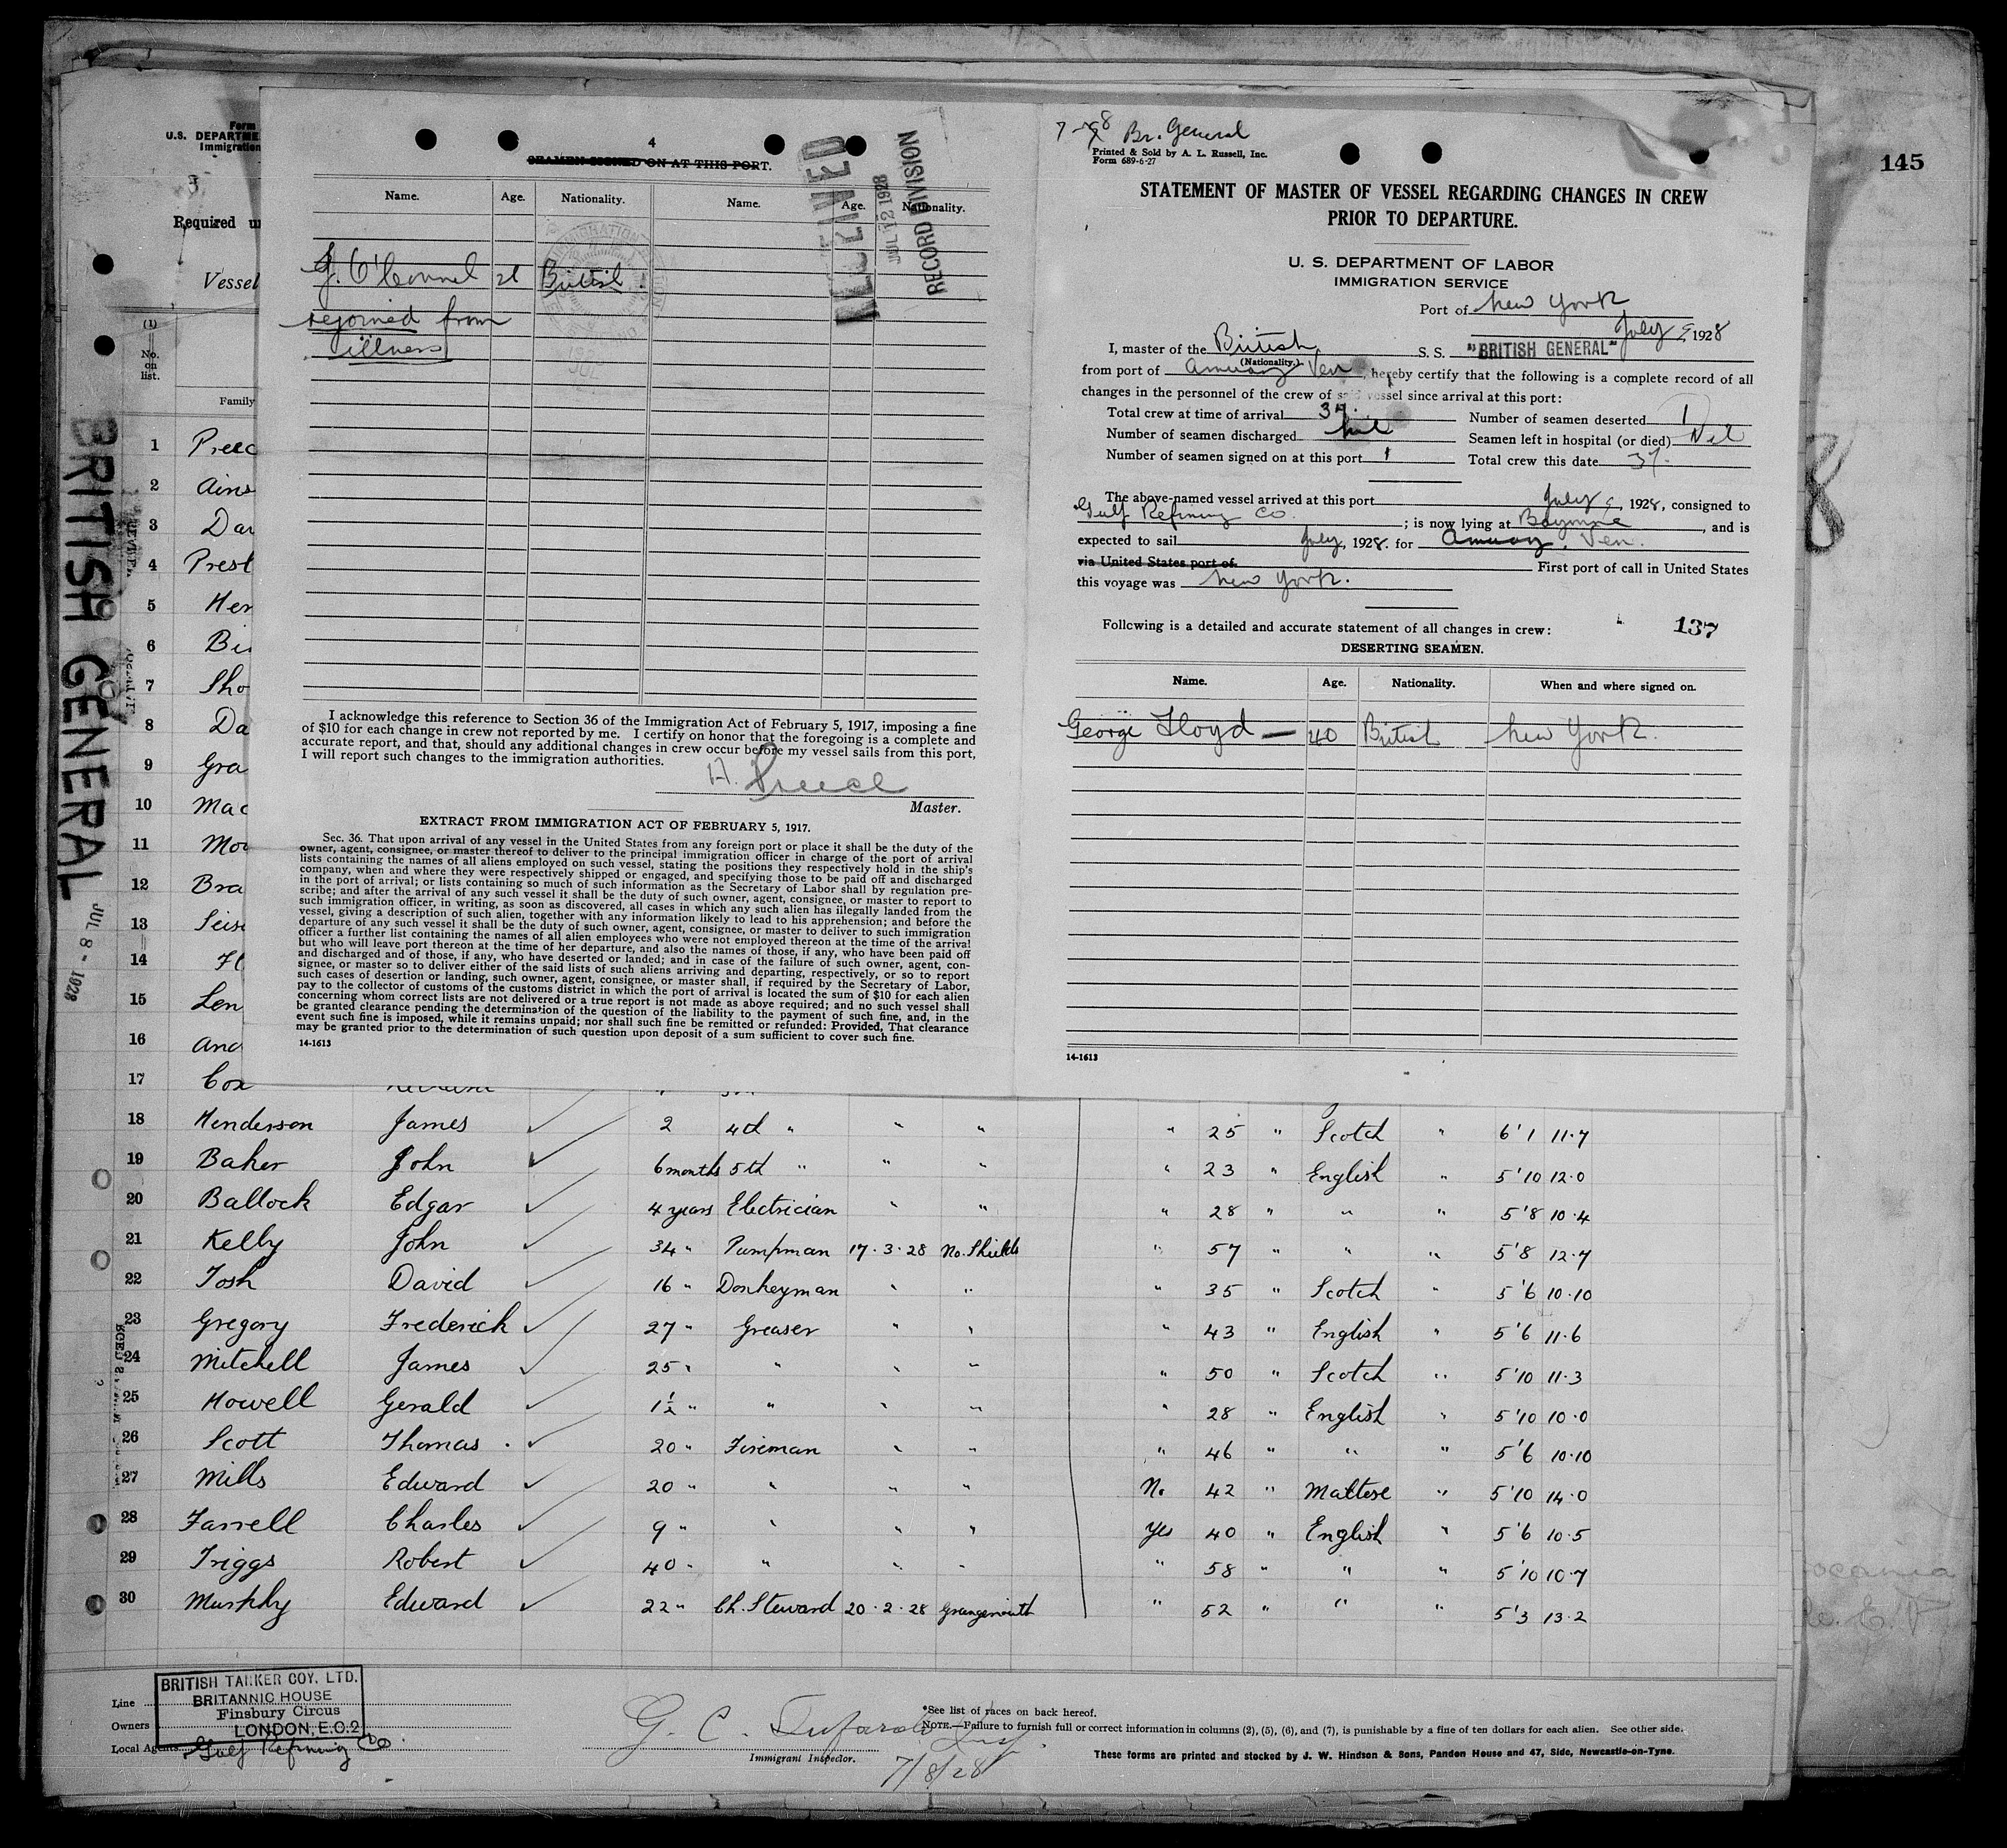 Form
U.S. DEPARTME
Immigration
Required u
Vessel
(1)
No.
on
list.
Family
BRITISH GENERAL
JUL 8 - 1928
1 Preec
2 Ains
3 Dar
4 Prest
5 Her
6 Bi
7 Sho
8 Da
9 Gra
10 Mac
11 Mo
12 Bra
13 Seis
14 H
15 Len
16 And
17 Cox
4
SEAMEN SIGNED ON AT THIS PORT.
RECEIVED
JUL 12 1928
RECORD DIVISION
Name. Age. Nationality. Name. Age. Nationality.
J. O'Connel 21 British
rejoined from
illness
I acknowledge this reference to Section 36 of the Immigration Act of February 5, 1917, imposing a fine
of $10 for each change in crew not reported by me. I certify on honor that the foregoing is a complete and
accurate report, and that, should any additional changes in crew occur before my vessel sails from this port,
I will report such changes to the immigration authorities.
H. Preece
Master.
EXTRACT FROM IMMIGRATION ACT OF FEBRUARY 5, 1917.
Sec. 36. That upon arrival of any vessel in the United States from any foreign port or place it shall be the duty of the
owner, agent, consignee, or master thereof to deliver to the principal immigration officer in charge of the port of arrival
lists containing the names of all aliens employed on such vessel, stating the positions they respectively hold in the ship's
company, when and where they were respectively shipped or engaged, and specifying those to be paid off and discharged
in the port of arrival; or lists containing so much of such information as the Secretary of Labor shall by regulation pre-
scribe; and after the arrival of any such vessel it shall be the duty of such owner, agent, consignee, or master to report to
such immigration officer, in writing, as soon as discovered, all cases in which any such alien has illegally landed from the
vessel, giving a description of such alien, together with any information likely to lead to his apprehension; and before the
departure of any such vessel it shall be the duty of such owner, agent, consignee, or master to deliver to such immigration
officer a further list containing the names of all alien employees who were not employed thereon at the time of the arrival
but who will leave port thereon at the time of her departure, and also the names of those, if any, who have been paid off
and discharged and of those, if any, who have deserted or landed; and in case of the failure of such owner, agent, con-
signee, or master so to deliver either of the said lists of such aliens arriving and departing, respectively, or so to report
such cases of desertion or landing, such owner, agent, consignee, or master shall, if required by the Secretary of Labor,
pay to the collector of customs of the customs district in which the port of arrival is located the sum of $10 for each alien
concerning whom correct lists are not delivered or a true report is not made as above required; and no such vessel shall
be granted clearance pending the determination of the question of the liability to the payment of such fine, and, in the
event such fine is imposed, while it remains unpaid; nor shall such fine be remitted or refunded: Provided, That clearance
may be granted prior to the determination of such question upon deposit of a sum sufficient to cover such fine.
14-1613
Br. General
Printed & Sold by A. L. Russell, Inc.
Form 689-6-27
145
STATEMENT OF MASTER OF VESSEL REGARDING CHANGES IN CREW
PRIOR TO DEPARTURE.
U. S. DEPARTMENT OF LABOR
IMMIGRATION SERVICE
Port of New York
July 9, 1928
I, master of the British S. S. "BRITISH GENERAL"
(Nationality.)
from port of Amuay Ven, hereby certify that the following is a complete record of all
changes in the personnel of the crew of said vessel since arrival at this port:
Total crew at time of arrival 37. Number of seamen deserted 1
Number of seamen discharged nil Seamen left in hospital (or died) Nil
Number of seamen signed on at this port 1 Total crew this date 37.
The above-named vessel arrived at this port July 9, 1928, consigned to
Gulf Refining Co. ; is now lying at Bayonne, and is
expected to sail July, 1928. for Amuay, Ven.
via United States port of. First port of call in United States
this voyage was New York.
Following is a detailed and accurate statement of all changes in crew: 137
DESERTING SEAMEN.
Name. Age. Nationality. When and where signed on.
George Lloyd — 40 British New York.
14-1613
18 Henderson James 2 4th " " " " 25 " Scotch " 6'1 11·7
19 Baker John 6 months 5th " " " " 23 " English " 5'10 12·0
20 Ballock Edgar 4 years Electrician " " " 28 " " " 5'8 10·4
21 Kelly John 34 " Pumpman 17·3·28 No. Shields " 57 " " " 5'8 12·7
22 Tosh David 16 " Donkeyman " " " 35 " Scotch " 5'6 10·10
23 Gregory Frederick 27 " Greaser " " " 43 " English " 5'6 11·6
24 Mitchell James 25 " " " " " 50 " Scotch " 5'10 11·3
25 Howell Gerald 1½ " " " " " 28 " English " 5'10 10·0
26 Scott Thomas 20 " Fireman " " " 46 " " " 5'6 10·10
27 Mills Edward 20 " " " " No 42 " Maltese " 5'10 14·0
28 Farrell Charles 9 " " " " Yes 40 " English " 5'6 10·5
29 Triggs Robert 40 " " " " " 58 " " " 5'10 10·7
30 Murphy Edward 22 " Ch. Steward 20·2·28 Grangemouth " 52 " " " 5'3 13·2
Line
Owners
Local Agents Gulf Refining Co
BRITISH TANKER COY. LTD.
BRITANNIC HOUSE
Finsbury Circus
LONDON, E.C.2
G. C.
Immigrant Inspector.
7/8/28
*See list of races on back hereof.
NOTE.—Failure to furnish full or correct information in columns (2), (5), (6), and (7), is punishable by a fine of ten dollars for each alien. See other side.
These forms are printed and stocked by J. W. Hindson & Sons, Pandon House and 47, Side, Newcastle-on-Tyne.